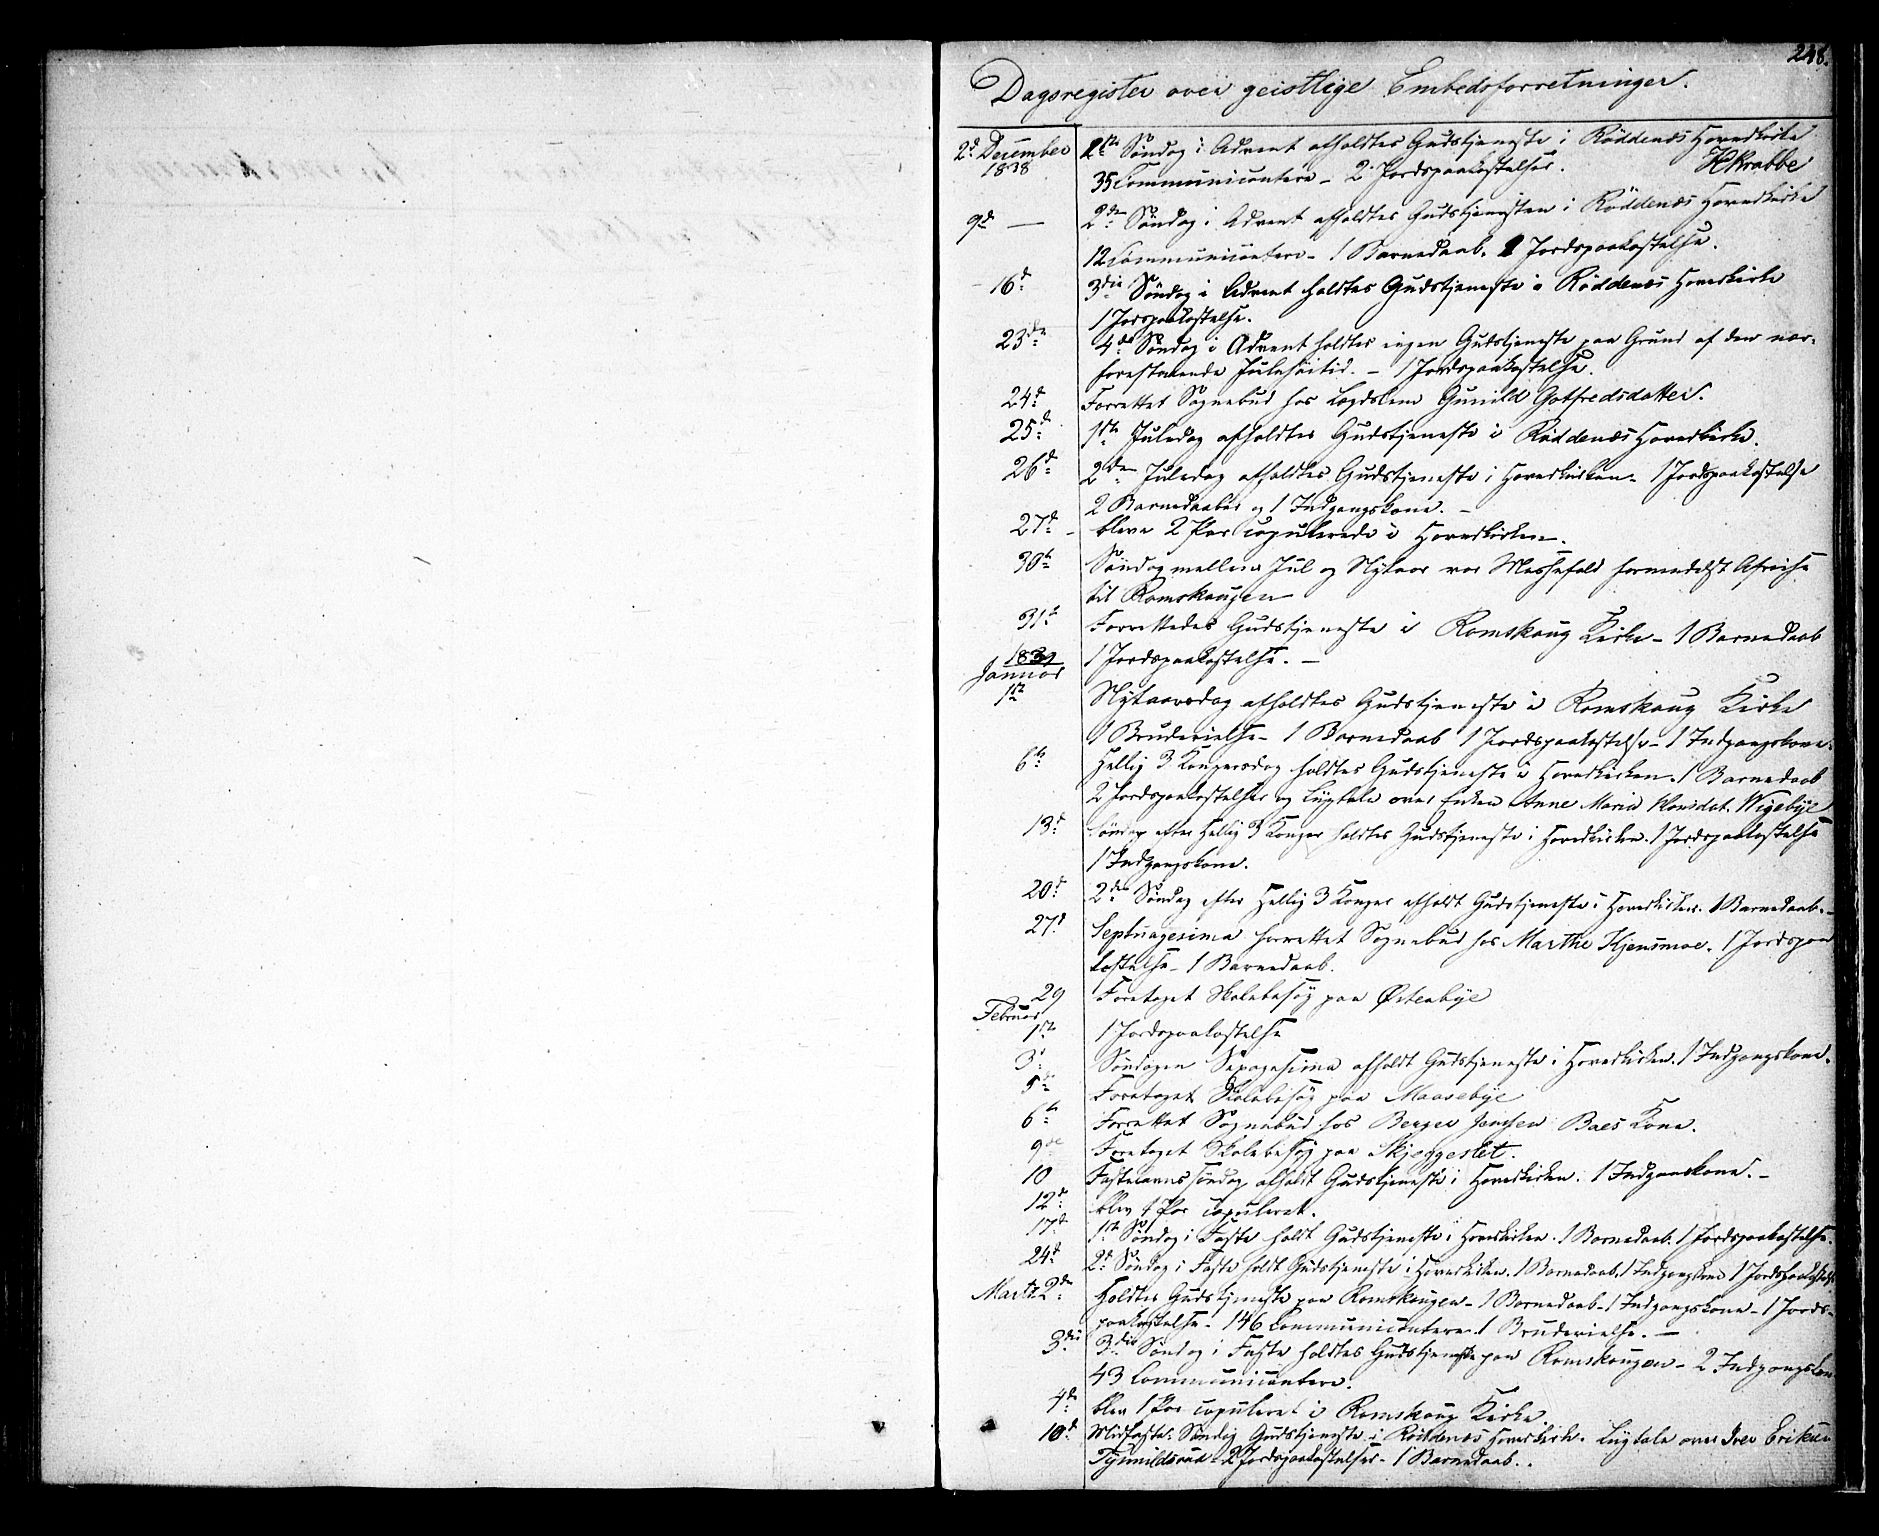 248.
Dagsregister over geistlige Embedsforretninger.
2d December 1838 1ste Søndag i Advent afholdtes Gudstjeneste i Røddenæs Hovedkirke
35 Communicantere - 2 Jordspaakastelser. H Krabbe
9d — 2den Søndag i Advent afholdtes Gudstjenesten i Røddenæs Hovedkirke
12 Communicantere - 1 Barnedaab. 1 Jordspaakastelse.
16d 3die Søndag i Advent holdtes Gudstjeneste i Røddenæs Hovedkirke
1 Jordspaakastelse.
23de 4de Søndag i Advent holdtes ingen Gudstjeneste paa Grund af den nær-
forestaaende Julehøitid. - 1 Jordspaakastelse.
24d Forrettet Sognebud hos Lægdslem Gunild Gotfredsdatter.
25d 1ste Juledag afholdtes Gudstjeneste i Røddenæs Hovedkirke.
26d 2den Juledag afholdtes Gudstjeneste i Hovedkirken. 1 Jordspaakastelse
2 Barnedaaber og 1 Indgangskone. -
27d - bleve 2 Par copulerede i Hovedkirken.
30te Søndag mellem Jul og Nytaar var Messefald formedelst Afreise
til Romskougen
31te Forrettedes Gudstjeneste i Romskoug Kirke - 1 Barnedaab
1 Jordspaakastelse. -
1839
Januar
1ste Nytaarsdag afholdtes Gudstjeneste i Romskoug Kirke
1 Brudevielse - 1 Barnedaab 1 Jordspaakastelse - 1 Indgangskone.
6te Hellig 3 Kongersdag holdtes Gudstjeneste i Hovedkirken. 1 Barnedaab
2 Jordspaakastelser og Liigtale over Enken Anne Maria Hansdat. Wigebye
13d Søndag efter Hellig 3 Konger holdtes Gudstjeneste i Hovedkirken. 1 Jordspaakastelse
1 Indgangskone.
20d 2den Søndag efter Hellig 3 Konger afholdt Gudstjeneste i Hovedkirken. 1 Barnedaab. -
27d Septuagesima forrettet Sognebud hos Marthe Kjensmoe. 1 Jordspaa
kastelse - 1 Barnedaab.
29 Foretaget Skolebesøg paa Østenbye
Februar
1ste 1 Jordspaakastelse
3d Søndagen Sexagesima afholdt Gudstjeneste i Hovedkirken. 1 Indgangskone.
5te Foretaget Skolebesøg paa Maasebye
6te Forrettet Sognebud hos Berger Jensen Baes Kone.
9de Foretaget Skolebesøg paa
10 Fastelavnssøndag afholdt Gudstjeneste i Hovedkirken. 1 Indgangskone. -
12te blev 1 Par copuleret.
17d 1ste Søndag i Faste holdt Gudstjeneste i Hovedkirken. 1 Barnedaab. 1 Jordspaakastelse.
24d 2d Søndag i Faste holdt Gudstjeneste i Hovedkirken. 1 Barnedaab. 1 Indgangskone 1 Jordspaakastelse
Marts 2den Holdtes Gudstjeneste paa Romskougen - 1 Barnedaab - 1 Indgangskone - 1 Jords-
paakastelse - 146 Communicantere. 1 Brudevielse. -
3die 3die Søndag i Faste holdtes Gudstjeneste paa Romskougen - 2 Indgangskon
43 Communicantere.
4de blev 1 Par copuleret i Romskoug Kirke.
10d Midfaste Søndag Gudstjeneste i Røddenæs Hovedkirke. Liigtale over Iver Eriksen
2 Jordspaakastelser - 1 Barnedaab.